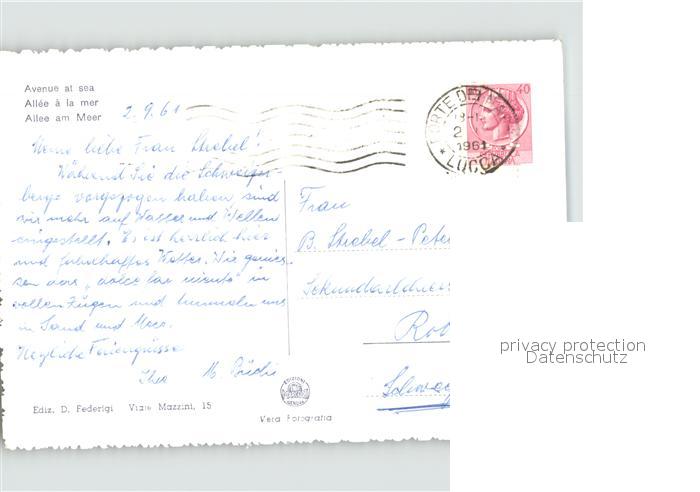 Avenue at sea
Allée à la mer
Allee am Meer
2.9.61
Meine liebe Frau Strebel!
Während Sie die Schweizer-
berge vorgezogen haben, sind
wir mehr auf Wasser und Wellen
eingestellt. Es ist herrlich hier
und fabelhaftes Wetter. Wir genies-
sen das "dolce far niente" in
vollen Zügen und tummeln uns
in Sand und Meer.
Herzliche Feriengrüsse
Ihre M.
Ediz. D. Federigi Viale Mazzini, 15
EDIZIONI
GENOVA
Vera Fotografia
40
FORTE DEI
2
1961
LUCCA
Frau
B. Strebel-Peter
Sekundarlehrer
Ro
Schwe
privacy protection
Datenschutz